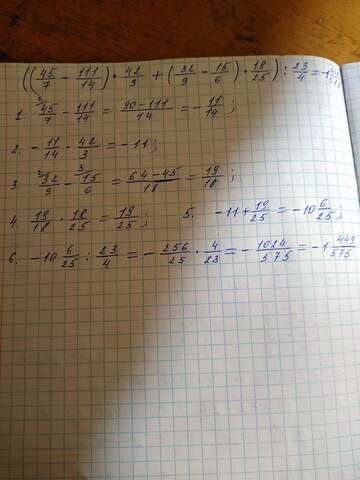 ((45/7 - 111/14) · 42/3 + (32/9 - 15/6) · 18/25) : 23/4 = -1 449/575
1. 45/7 - 111/14 = 90-111/14 = - 11/14;
2. - 11/14 · 42/3 = -11;
3. 32/9 - 15/6 = 64-45/18 = 19/18;
4. 19/18 · 18/25 = 19/25; 5. -11 + 19/25 = -10 6/25;
6. -10 6/25 : 23/4 = - 256/25 · 4/23 = - 1024/575 = -1 449/575